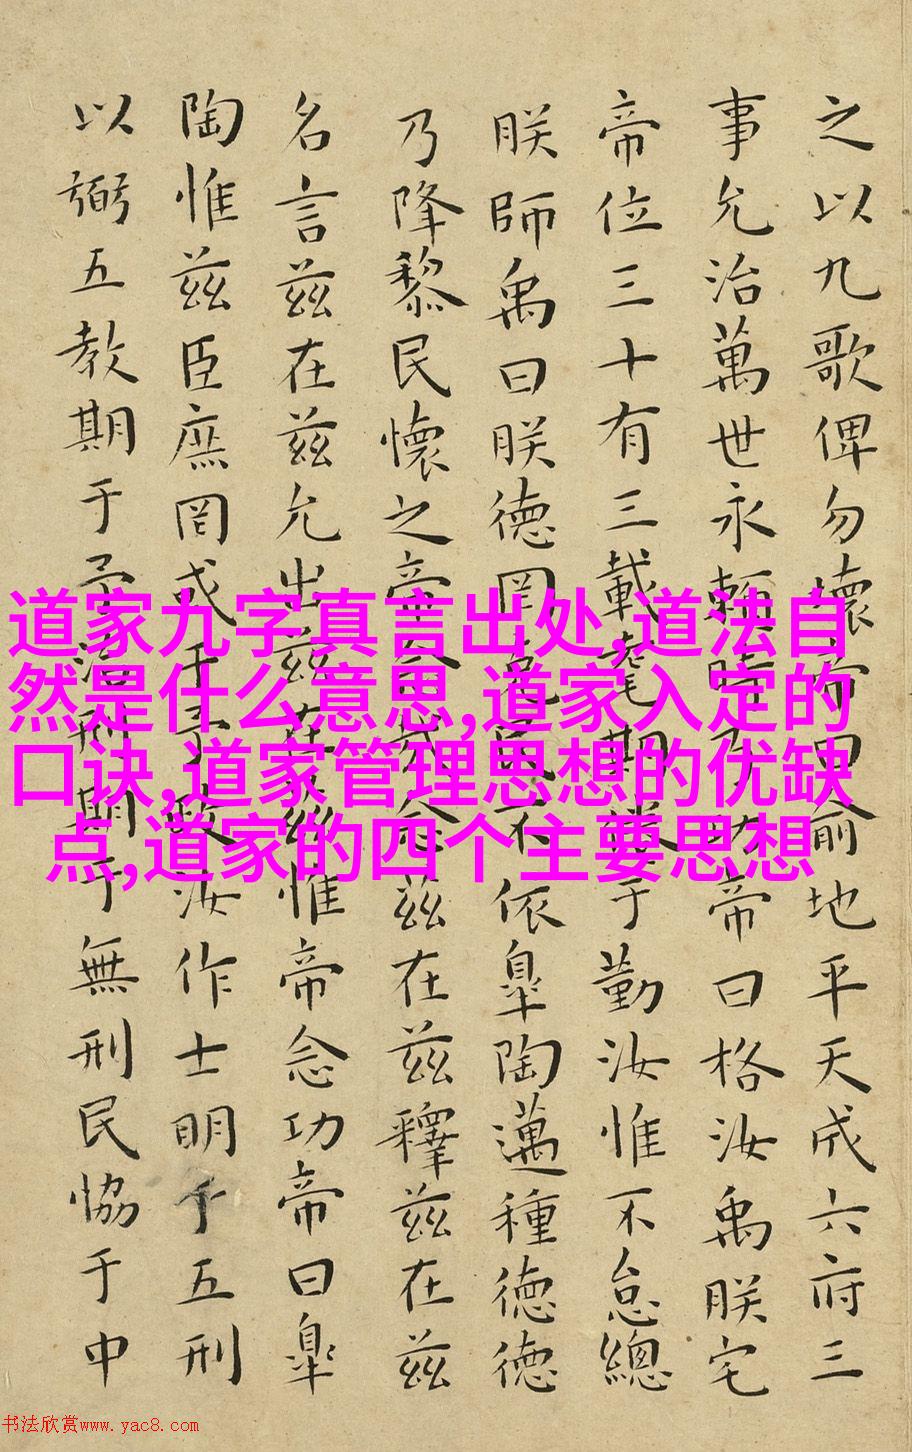 之以九歌俾勿壞帝曰俞地平天成六府三
事允治萬世永賴時乃功帝曰格汝禹朕宅
帝位三十有三載耄期倦于勤汝惟不怠總
朕師禹曰朕德罔克民不依臯陶邁種德德
乃降黎民懷之帝念哉念茲在茲釋茲在茲
名言茲在茲允出茲在茲惟帝念功帝曰臯
陶惟茲臣庶罔或干予政汝作士明于五刑
以弼五教期于予治刑期于無刑民協于中
道家九字真言出处,道法自
然是什么意思,道家入定的
口诀,道家管理思想的优缺
点,道家的四个主要思想
书法欣赏www.yac8.com